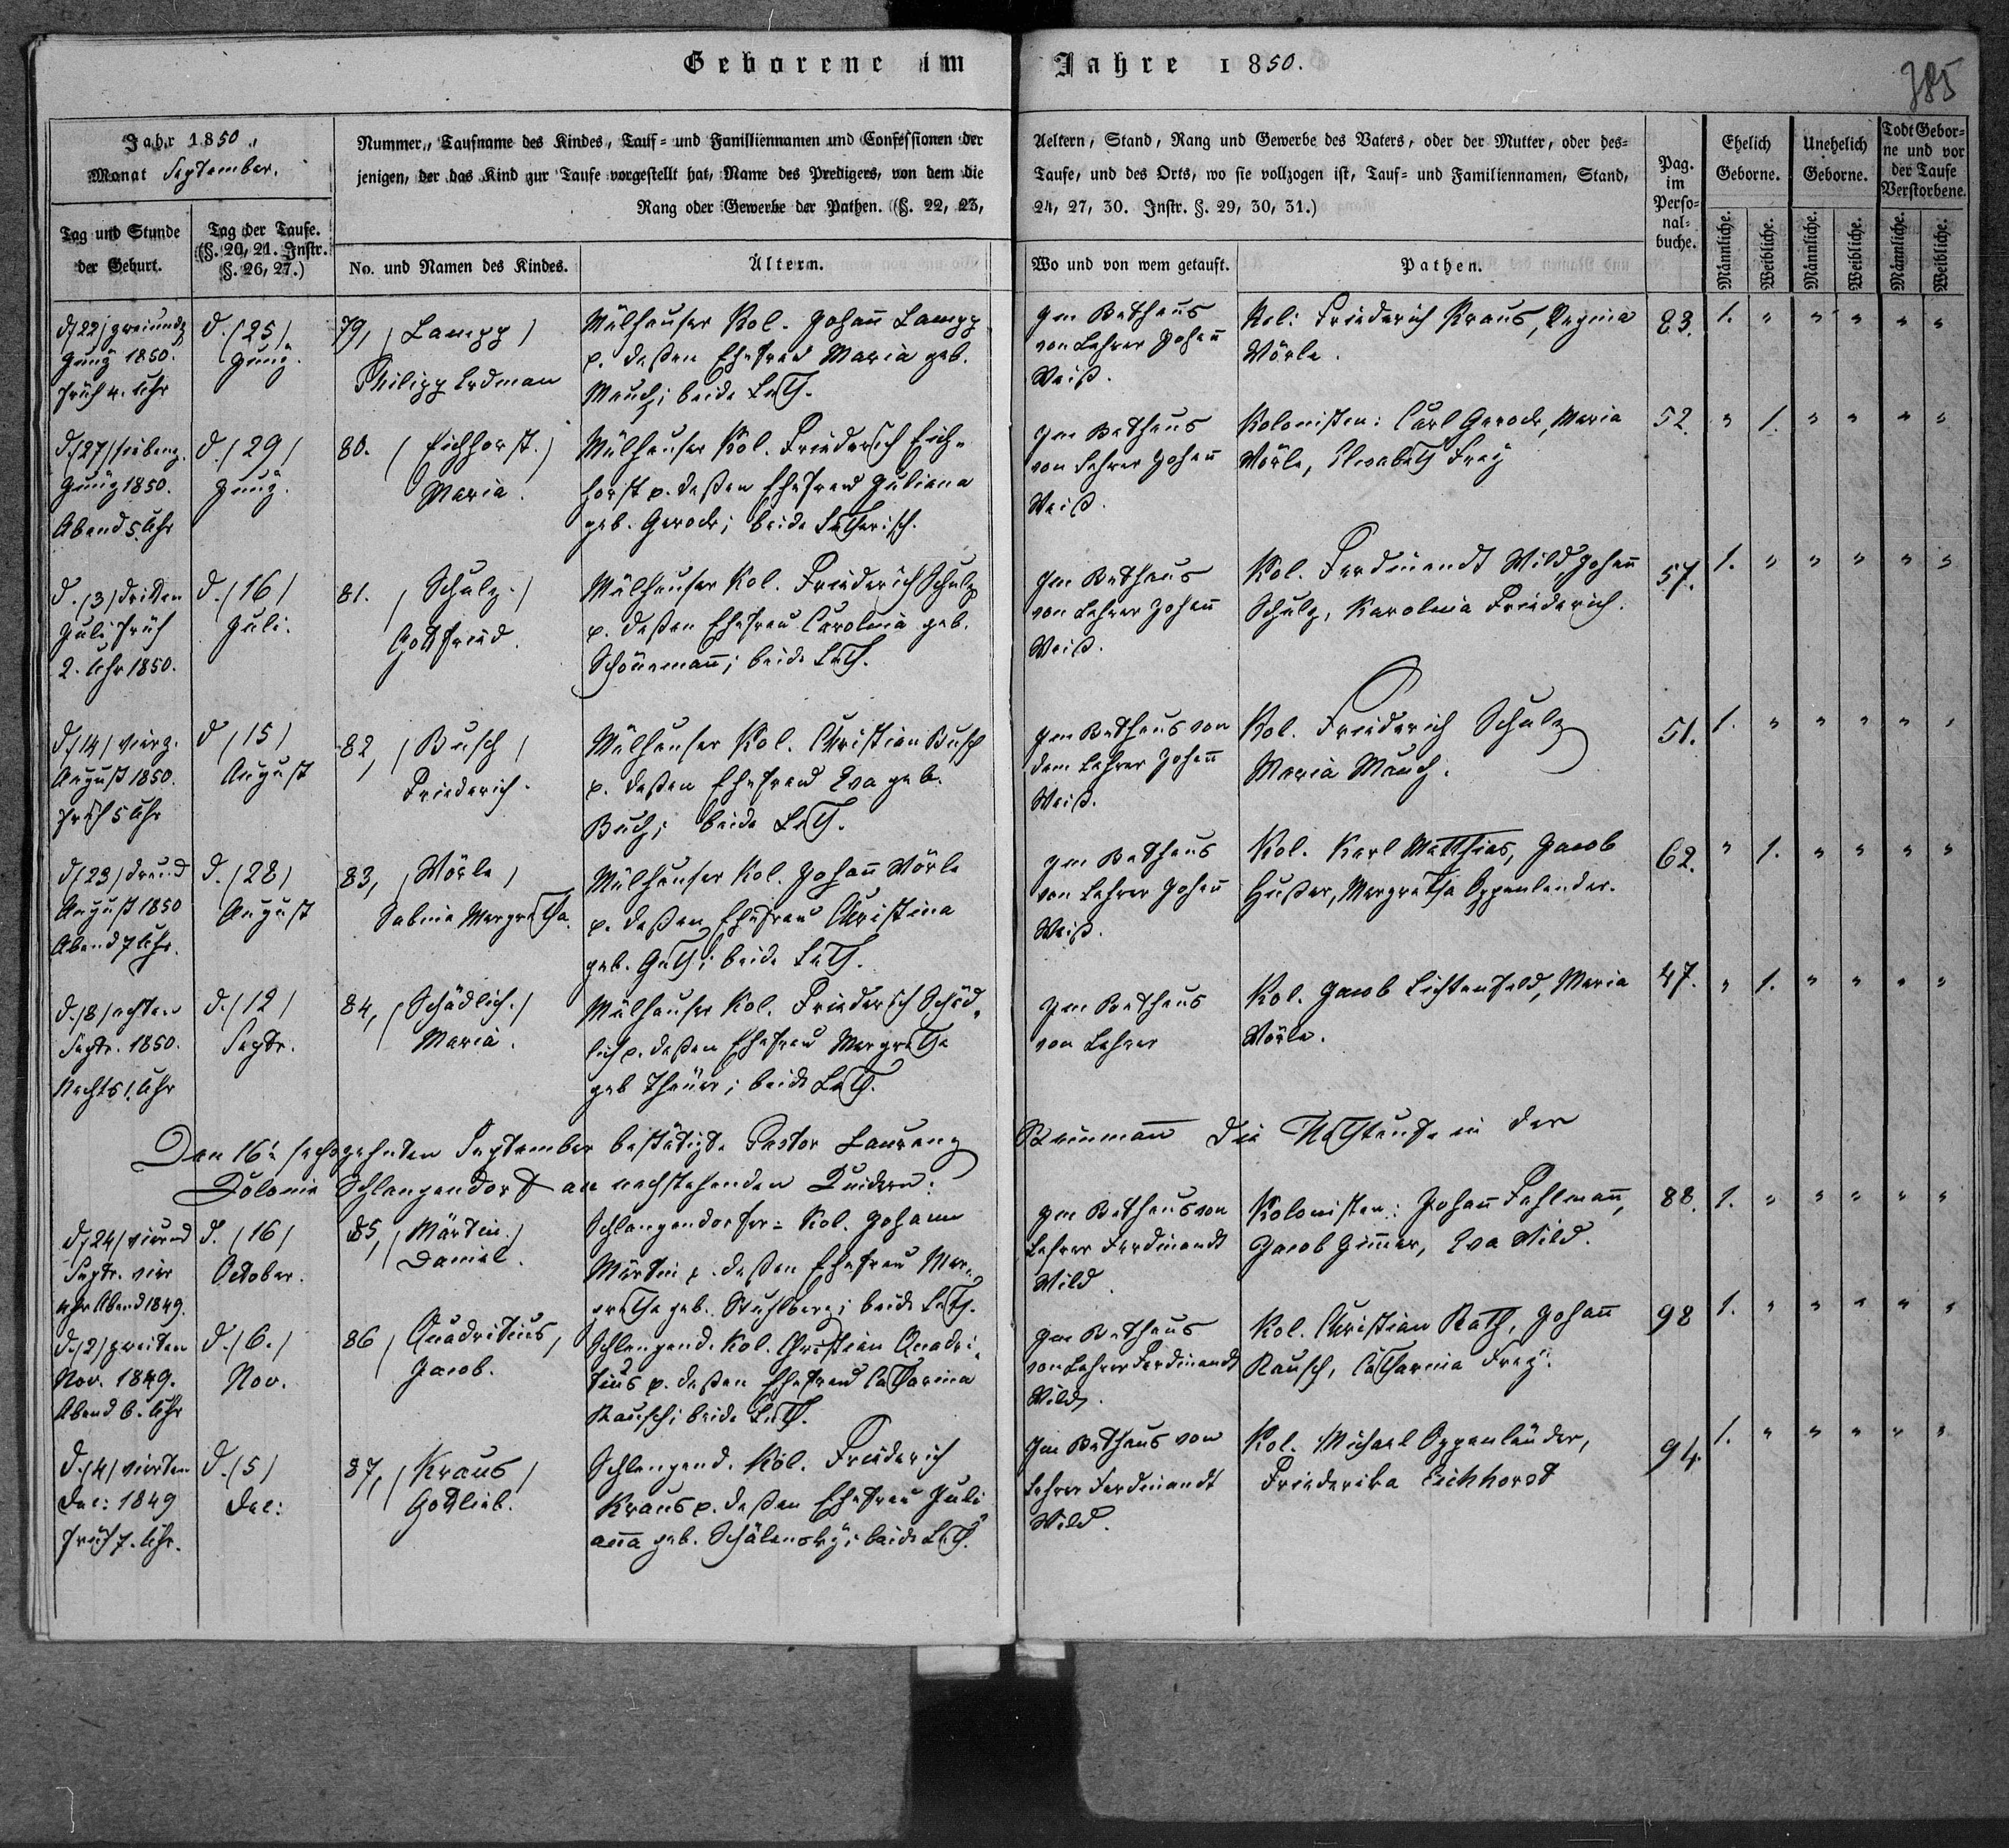 Geborene im Jahre 1850.
385
Jahr 1850.
Monat September.
Nummer, Taufname des Kindes, Tauf- und Familiennamen und Confessionen der
Aeltern, Stand, Rang und Gewerbe des Vaters, oder der Mutter, oder des-
jenigen, der das Kind zur Taufe vorgestellt hat, Name des Predigers, von dem die
Taufe, und des Orts, wo sie vollzogen ist, Tauf- und Familiennamen, Stand,
Rang oder Gewerbe der Pathen. (§. 22, 23,
24, 27, 30. Instr. §. 29, 30, 31.)
Pag.
im
Perso-
nal-
buche.
Ehelich
Geborne.
Unehelich
Geborne.
Todt Gebor-
ne und vor
der Taufe
Verstorbene.
Tag und Stunde
der Geburt.
Tag der Taufe.
(§. 20, 21. Instr.
§. 26, 27.)
No. und Namen des Kindes.
Ältern.
Wo und von wem getauft.
Pathen.
Männliche.
Weibliche.
Männliche.
Weibliche.
Männliche.
Weibliche.
d. /22/ zweiundz
Juny 1850.
früh 4. Uhr
d. /25/
Juny.
79, / Lampp /
Philipp Erdman
Mülhauser Kol. Johann Lampp
p. deßen Ehefrau Maria geb.
Mauch; beide Luth.
Im Bethaus
von Lehrer Johann
Weiß.
Kol: Friederich Kraus, Regina
Wörle.
83. 1. " " " " "
d. /27/ siebenz.
Juny 1850.
Abend 5. Uhr
d. /29/
Juny.
80. / Eichhorst. /
Maria.
Mülhauser Kol. Friederich Eich-
horst p. deßen Ehefrau Juliana
geb. Gerock; beide Lutherisch.
Im Bethaus
von Lehrer Johann
Weiß.
Kolonisten: Carl Gerock, Maria
Wörle, Elisabeth Frey
52. " 1. " " " "
d. /3/ dritten
Juli früh
2. Uhr 1850.
d. /16/
Juli.
81. / Schulz. /
Gottfried.
Mülhauser Kol. Friederich Schulz
p. deßen Ehefrau Carolina geb.
Schönemann; beide Luth.
Im Bethaus
von Lehrer Johann
Weiß.
Kol. Ferdinandt Wild, Johann
Schulz, Karolina Friederich.
57. 1. " " " " "
d. /14/ vierz.
August 1850.
früh 5 Uhr
d /15/
August
82, / Busch /
Friederich.
Mülhauser Kol. Christian Busch
p. deßen Ehefrau Eva geb.
Buch; beide Luth.
Im Bethaus von
dem Lehrer Johann
Weiß.
Kol. Friederich Schulz
Maria Mauch.
51. 1. " " " " "
d. /23/ dreiund
August 1850
Abend 7 Uhr.
d. /28/
August
83, / Wörle /
Sabina Margretha.
Mülhauser Kol. Johann Wörle
p. deßen Ehefrau Christina
geb. Guth; beide Luth.
Im Bethaus
von Lehrer Johann
Weiß.
Kol. Karl Matthias, Jacob
Hußer, Margretha Oppenlender.
62. " 1. " " " "
d. /8/ achten
Septr. 1850.
Nachts 1. Uhr
d. /12/
Septr.
84, / Schädlich. /
Maria.
Mülhauser Kol. Friederich Schäd-
lich p. deßen Ehefrau Margretha
geb Theurer; beide Luth.
Im Bethaus
von Lehrer
Kol. Jacob Lichtenfeld, Maria
Wörle.
47. " 1. " " " "
Den 16. sechszehnten September bestätigte Pastor Laurenz Steinmann die Nothtaufe in der
Colonie Schlangendorf an nachstehenden Kindern:
d. /24/ vierund
Septr. vier
Uhr Abend 1849.
d. /16/
October.
85, / Märtin. /
Daniel.
Schlangendorfer Kol. Johann
Märtin p. deßen Ehefrau Mar-
gretha geb. Stuhlberg; beide Luth.
Im Bethaus von
Lehrer Ferdinandt
Wild.
Kolonisten: Johann Fehlmann,
Jacob Zimmer, Eva Wild.
88. 1. " " " " "
d. /2/ zweiten
Nov. 1849.
Abend 6. Uhr
d. /6./
Nov.
86, / Quadritius, /
Jacob.
Schlangend. Kol. Christian Quadri-
tius p. deßen Ehefrau Catharina
Rausch; beide Luth.
Im Bethaus
von Lehrer Ferdinandt
Wild.
Kol. Christian Rath, Johann
Rausch, Catharina Frey.
98 1. " " " " "
d. /4/ vierten
Dec: 1849
früh 7. Uhr.
d. /5/
Dec:
87, / Kraus /
Gottlieb.
Schlangend. Kol. Friederich
Kraus p. deßen Ehefrau Juli
anna geb. Schälensky; beide Luth.
Im Bethaus von
Lehrer Ferdinandt
Wild.
Kol. Michael Oppenländer,
Friederika Eichhorst
94. 1. " " " " "